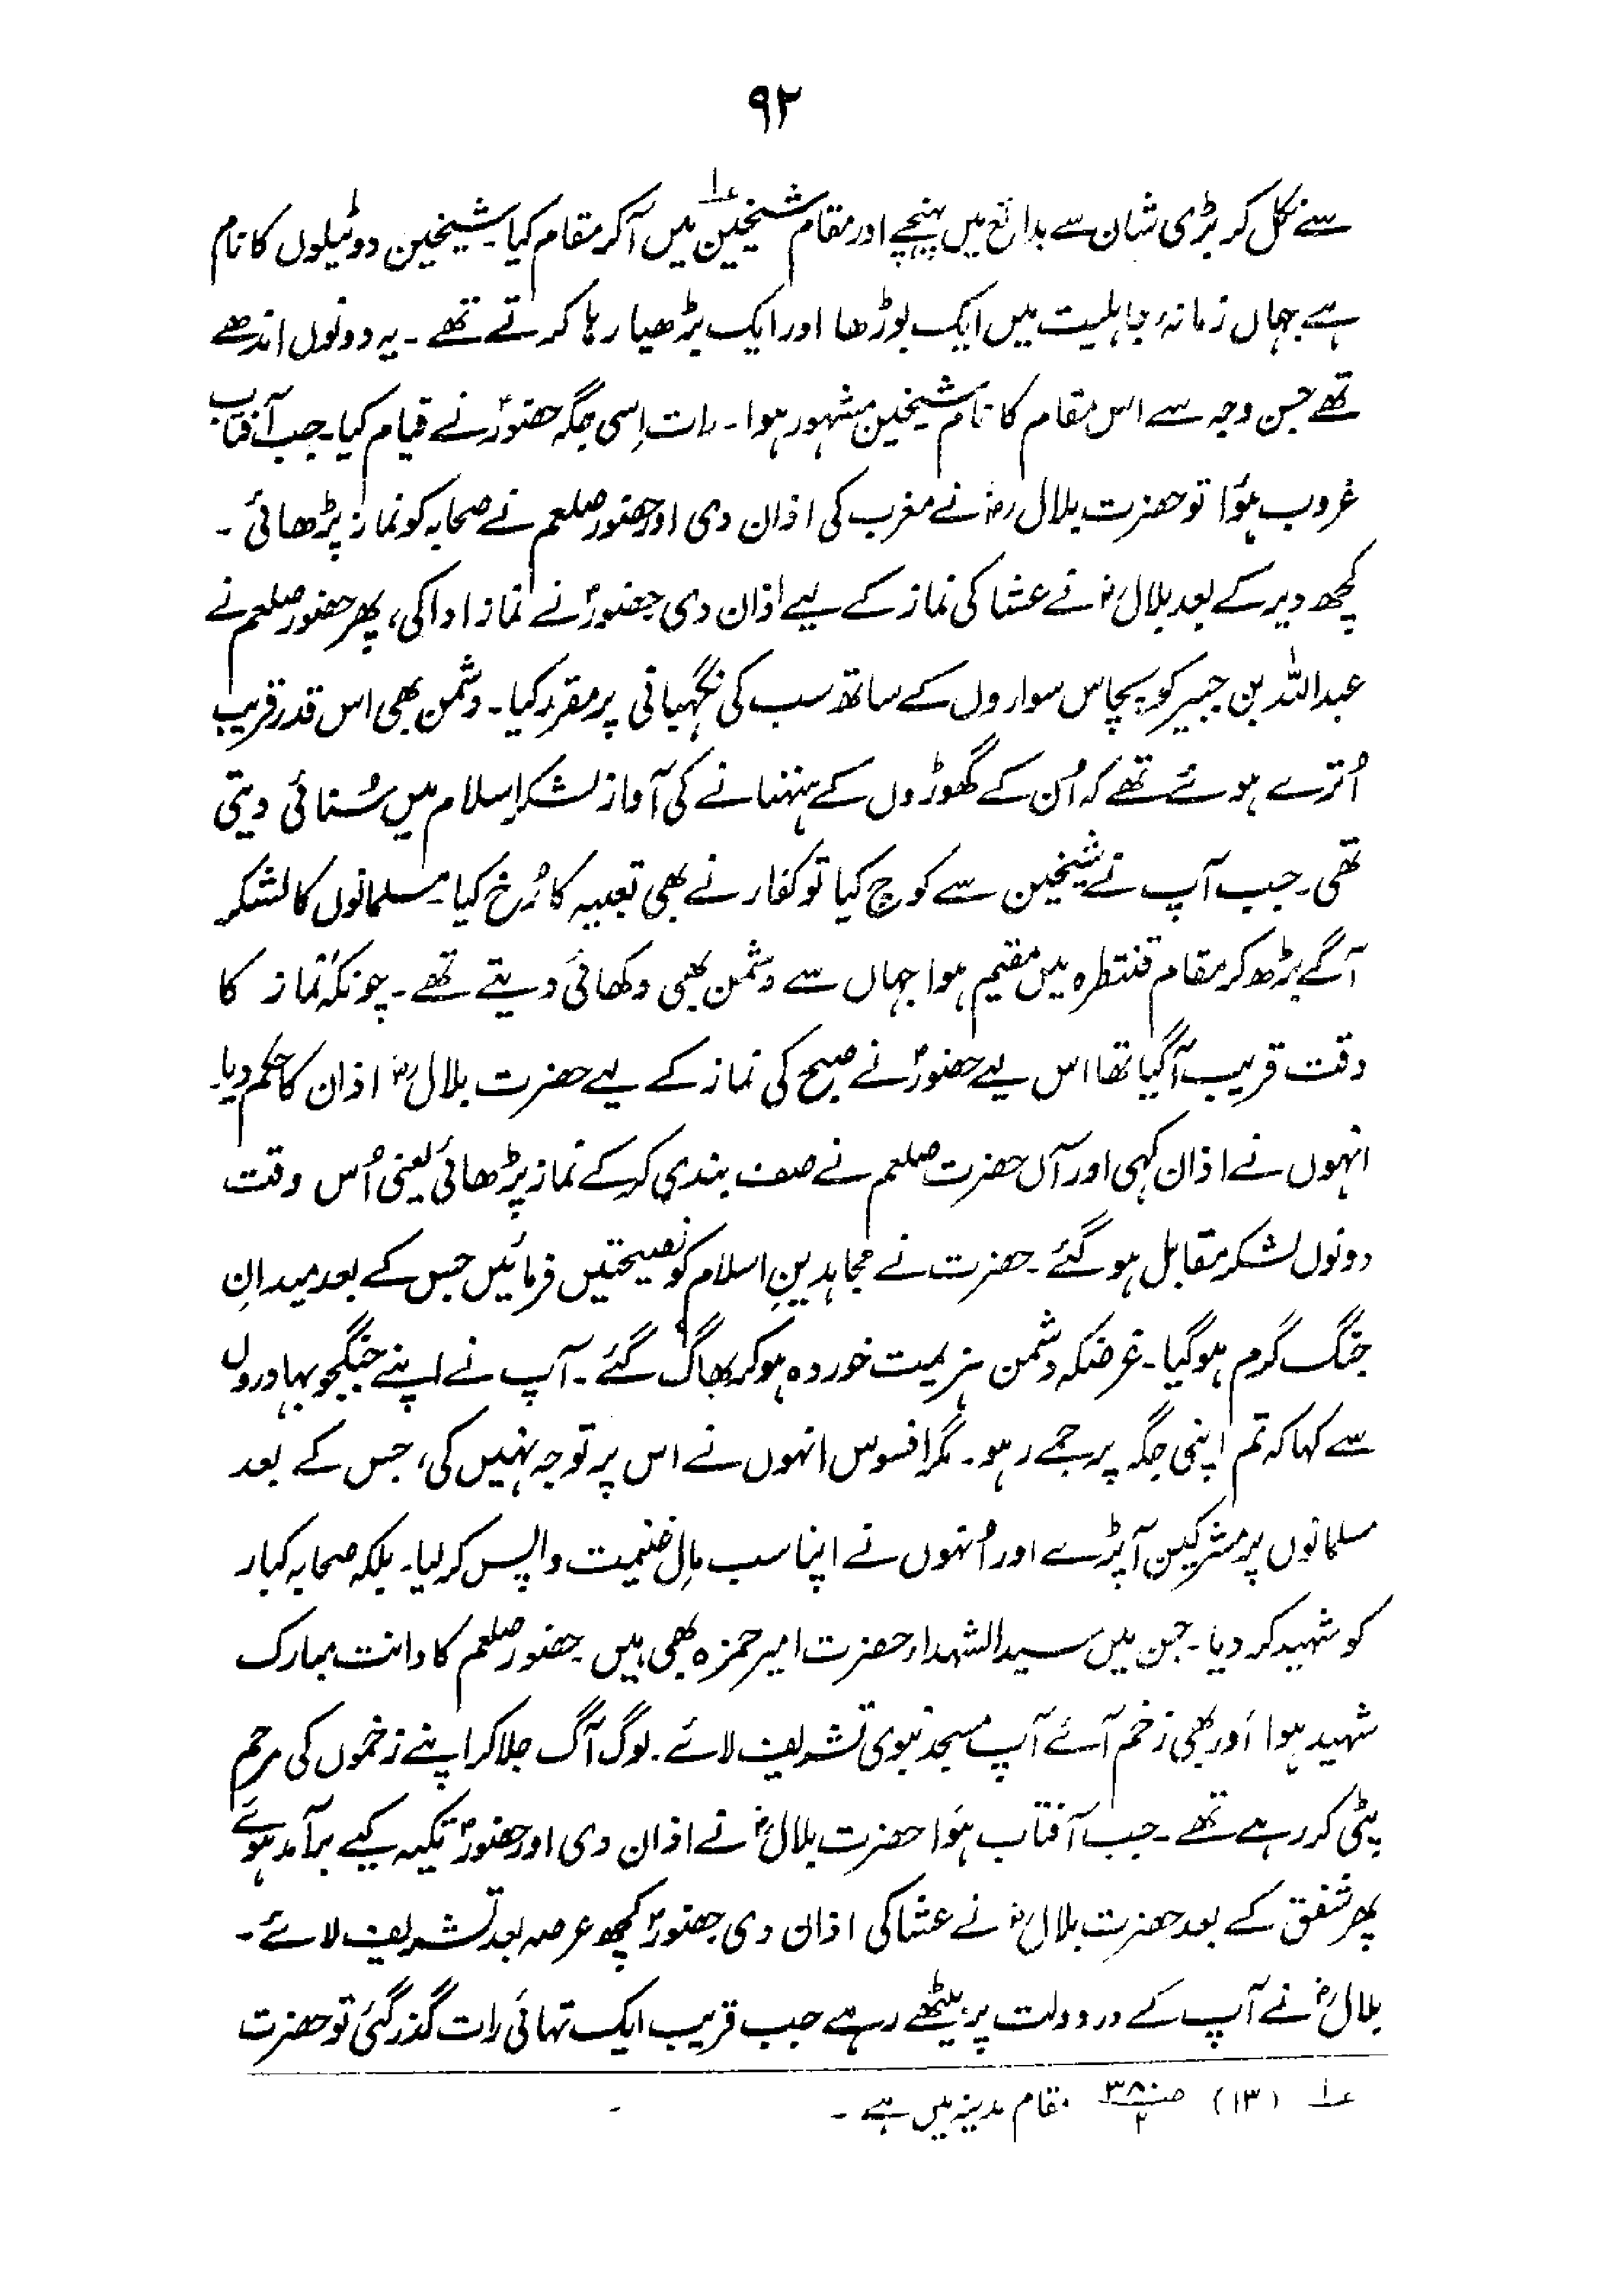 ۹۲
سے نکل کر بڑی شان سے بدائع میں پہنچے اور مقام شیخین ؏۱ میں آکر مقام کیا۔ شیخین دو ٹیلوں کا نام
ہے جہاں زمانۂ جاہلیت میں ایک بوڑھا اور ایک بڑھیا رہا کرتے تھے ۔ یہ دونوں اندھے
تھے جس وجہ سے اس مقام کا نام شیخین مشہور ہوا۔ رات اِسی جگہ حضورؐ نے قیام کیا۔ جب آفتاب
غروب ہؤا تو حضرت بلالؓ نے مغرب کی اذان دی اور حضور صلعم نے صحابہ کو نماز پڑھائی ۔
کچھ دیر کے بعد بلالؓ نے عشا کی نماز کے لیے اذان دی حضورؐ نے نماز ادا کی، پھر حضور صلعم نے
عبداللہ بن جبیر کو پچاس سواروں کے ساتھ سب کی نگہبانی پر مقرر کیا۔ دشمن بھی اس قدر قریب
اُترے ہوئے تھے کہ اُن کے گھوڑوں کے ہنہنانے کی آواز لشکرِ اسلام میں سُنائی دیتی
تھی۔ جب آپ نے شیخین سے کوچ کیا تو کفار نے بھی تعبیہ کا رُخ کیا۔ مسلمانوں کا لشکر
آگے بڑھ کر مقام قنتطرہ میں مقیم ہوا جہاں سے دشمن بھی دکھائی دیتے تھے۔ چونکہ نماز کا
وقت قریب آگیا تھا اس لیے حضورؐ نے صبح کی نماز کے لیے حضرت بلالؓ اذان کا حکم دیا۔
انہوں نے اذان کہی اور آں حضرت صلعم نے صف بندی کرکے نماز پڑھائی یعنی اُس وقت
دونوں لشکر مقابل ہو گئے ۔ حضرت نے مجاہدینِ اسلام کو نصیحتیں فرمائیں جس کے بعد میدانِ
جنگ گرم ہوگیا۔ غرضکہ دشمن ہزیمت خوردہ ہوکر بھاگ گئے ۔ آپ نے اپنے جنگجو بہادروں
سے کہا کہ تم اپنی جگہ پر جمے رہو۔ مگر افسوس انہوں نے اس پر توجہ نہیں کی، جس کے بعد
مسلمانوں پر مشرکین آپڑے اور اُنہوں نے اپنا سب مالِ غنیمت واپس کرلیا۔ بلکہ صحابہ کبار
کو شہید کر دیا۔ جن میں سید الشہداء حضرت امیر حمزہ بھی ہیں۔ حضور صلعم کا دانت مبارک
شہید ہوا اَور بھی زخم آئے آپ مسجد نبوی تشریف لائے۔ لوگ آگ جلا کر اپنے زخموں کی مرحم
پٹی کر رہے تھے ۔ جب آفتاب ہؤا حضرت بلالؓ نے اذان دی اور حضورؐ تکیہ کیے برآمد ہوئے
پھر شفق کے بعد حضرت بلالؓ نے عشا کی اذان دی حضورؐ کچھ عرصہ بعد تشریف لائے ۔
بلالؓ نے آپ کے در دولت پر بیٹھے رہے جب قریب ایک تہائی رات گذر گئی تو حضرت
؏۱ (۱۳) صـ ۳۸۰/۲ مقام مدینہ میں ہے ۔